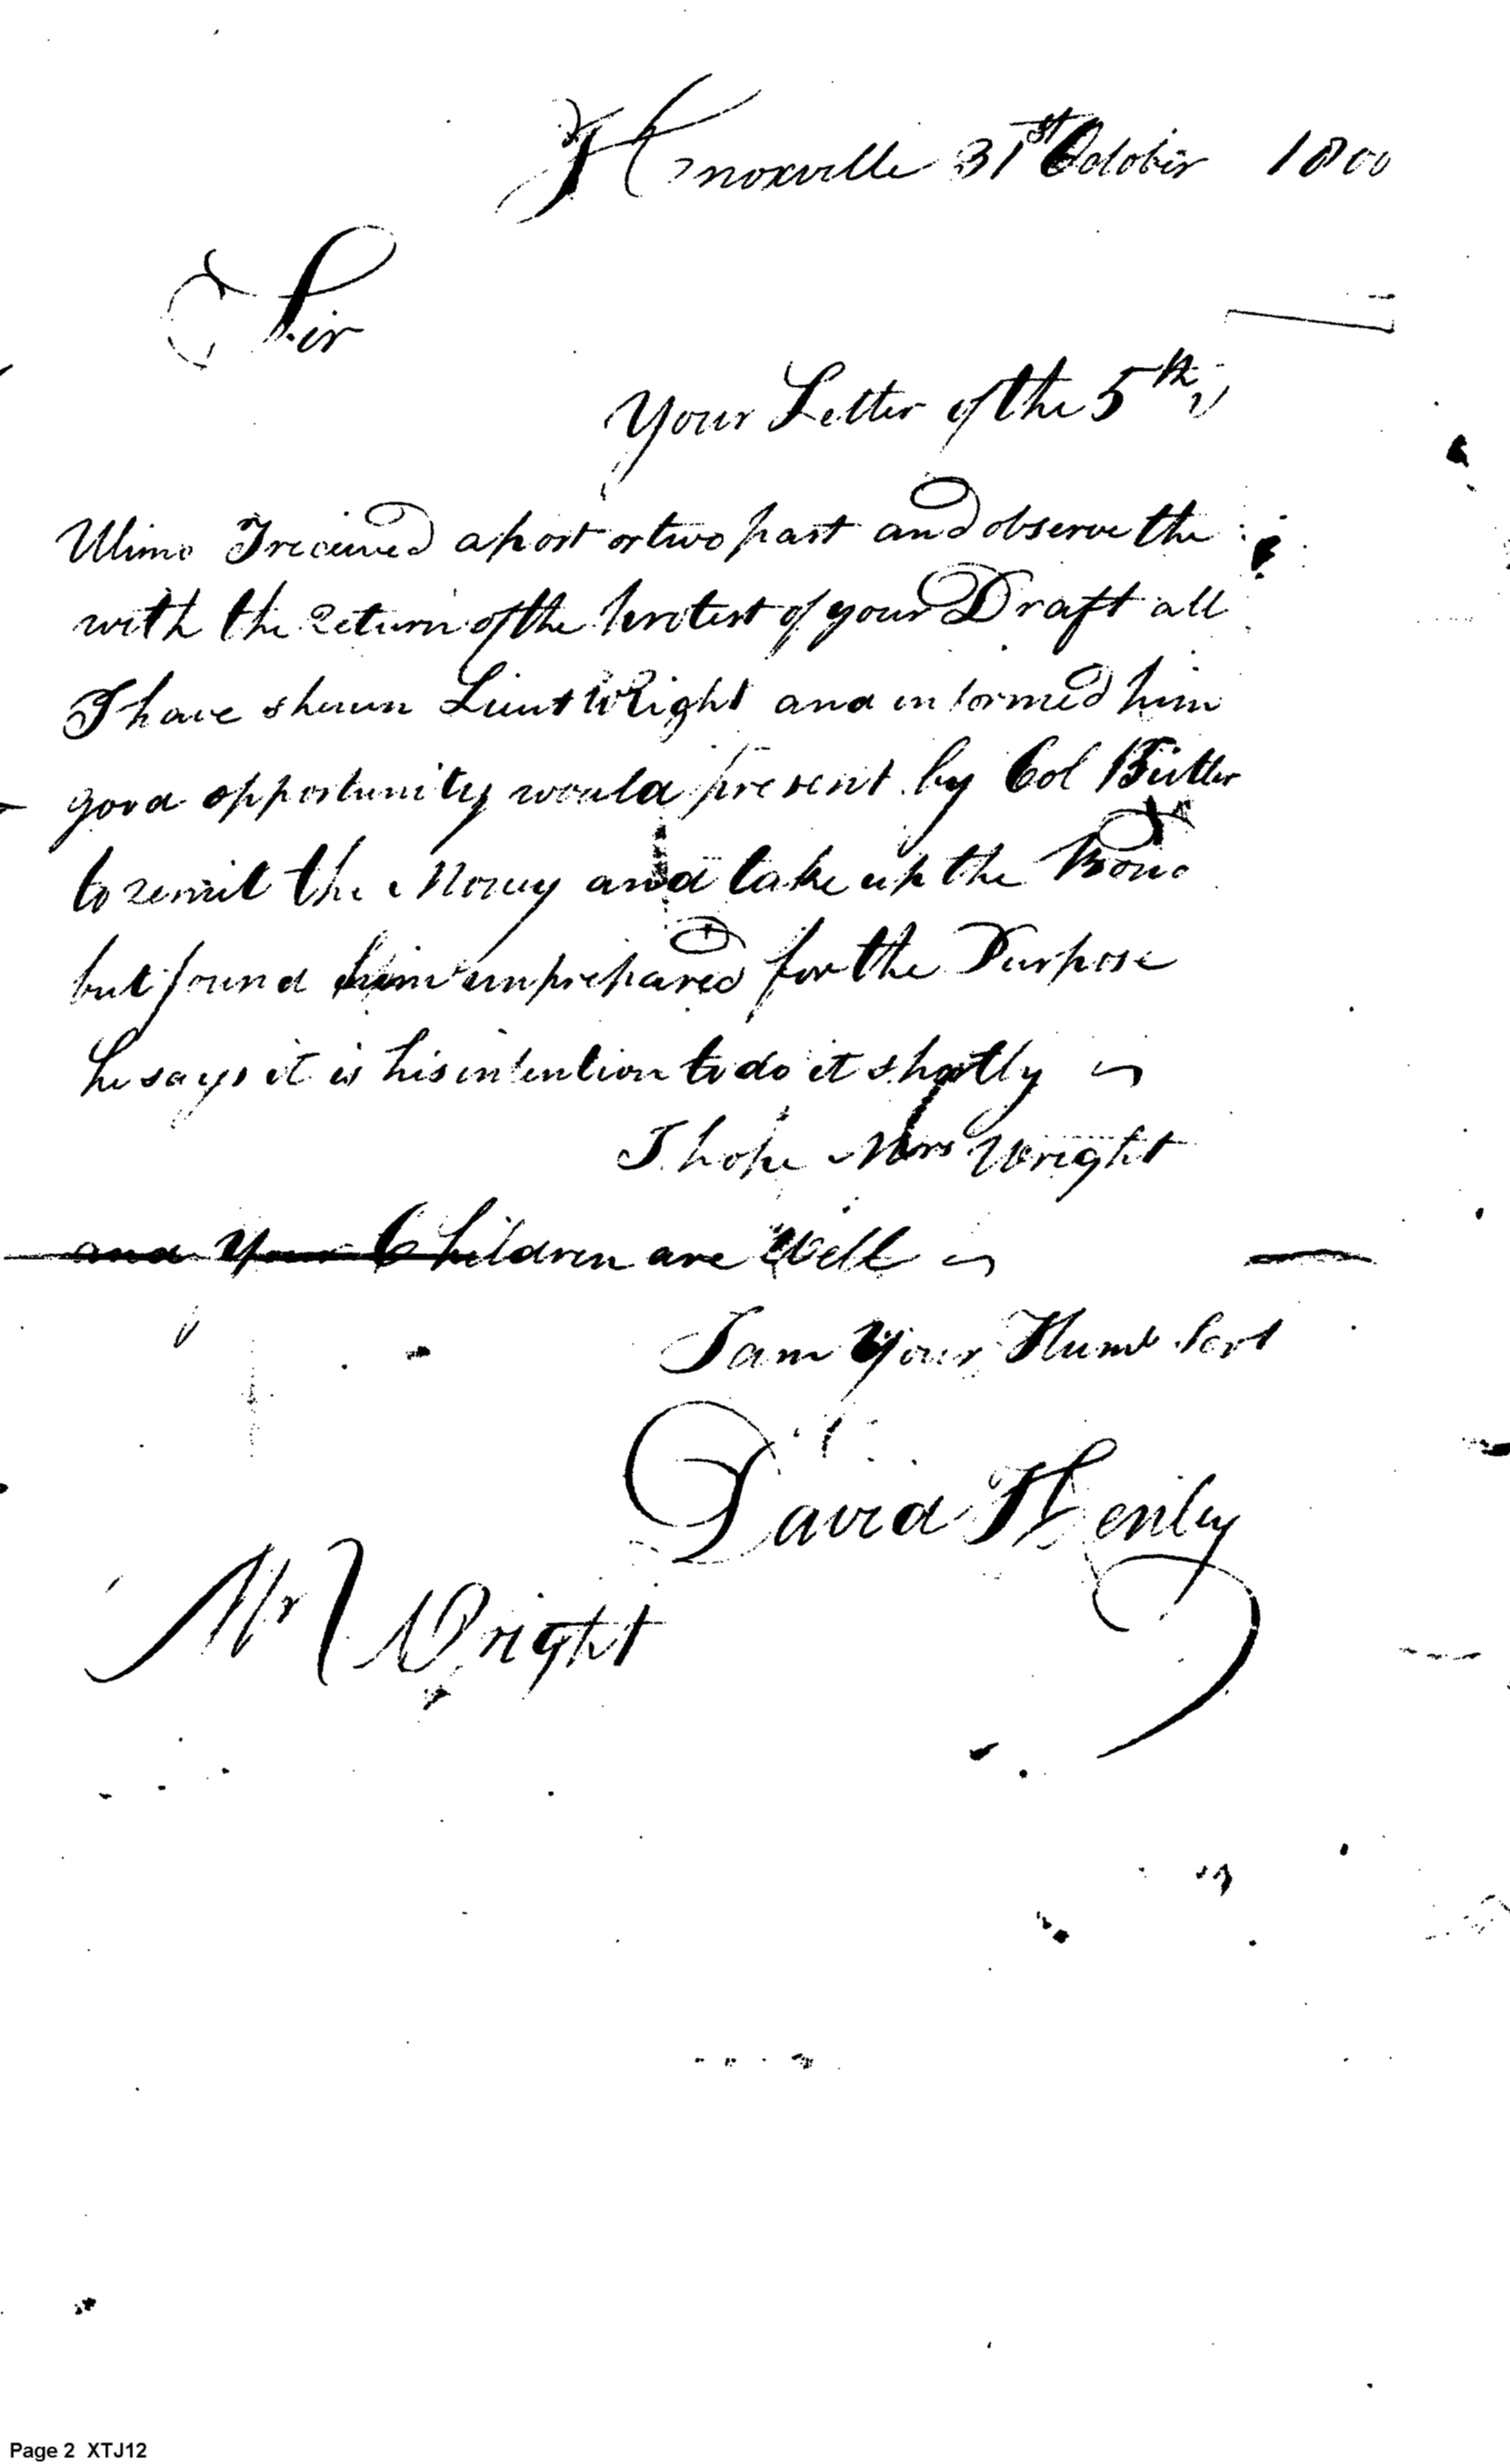 Knoxville 31st October 1800
Sir
Your Letter of the 5th
Ultimo I received a post or two past and observe the
with the return of the Protest of your Draft all
I have shewn Lieut Wright and informed him
good opportunity would present by Col Butler
to remit the Money and take up the Bond
but found him unprepared for the Purpose
he says it is his intention to do it shortly
I hope Mrs Wright
and Your Children are Well
I am Your Humb Sert
David Henley
Mr Wright
Page 2 XTJ12